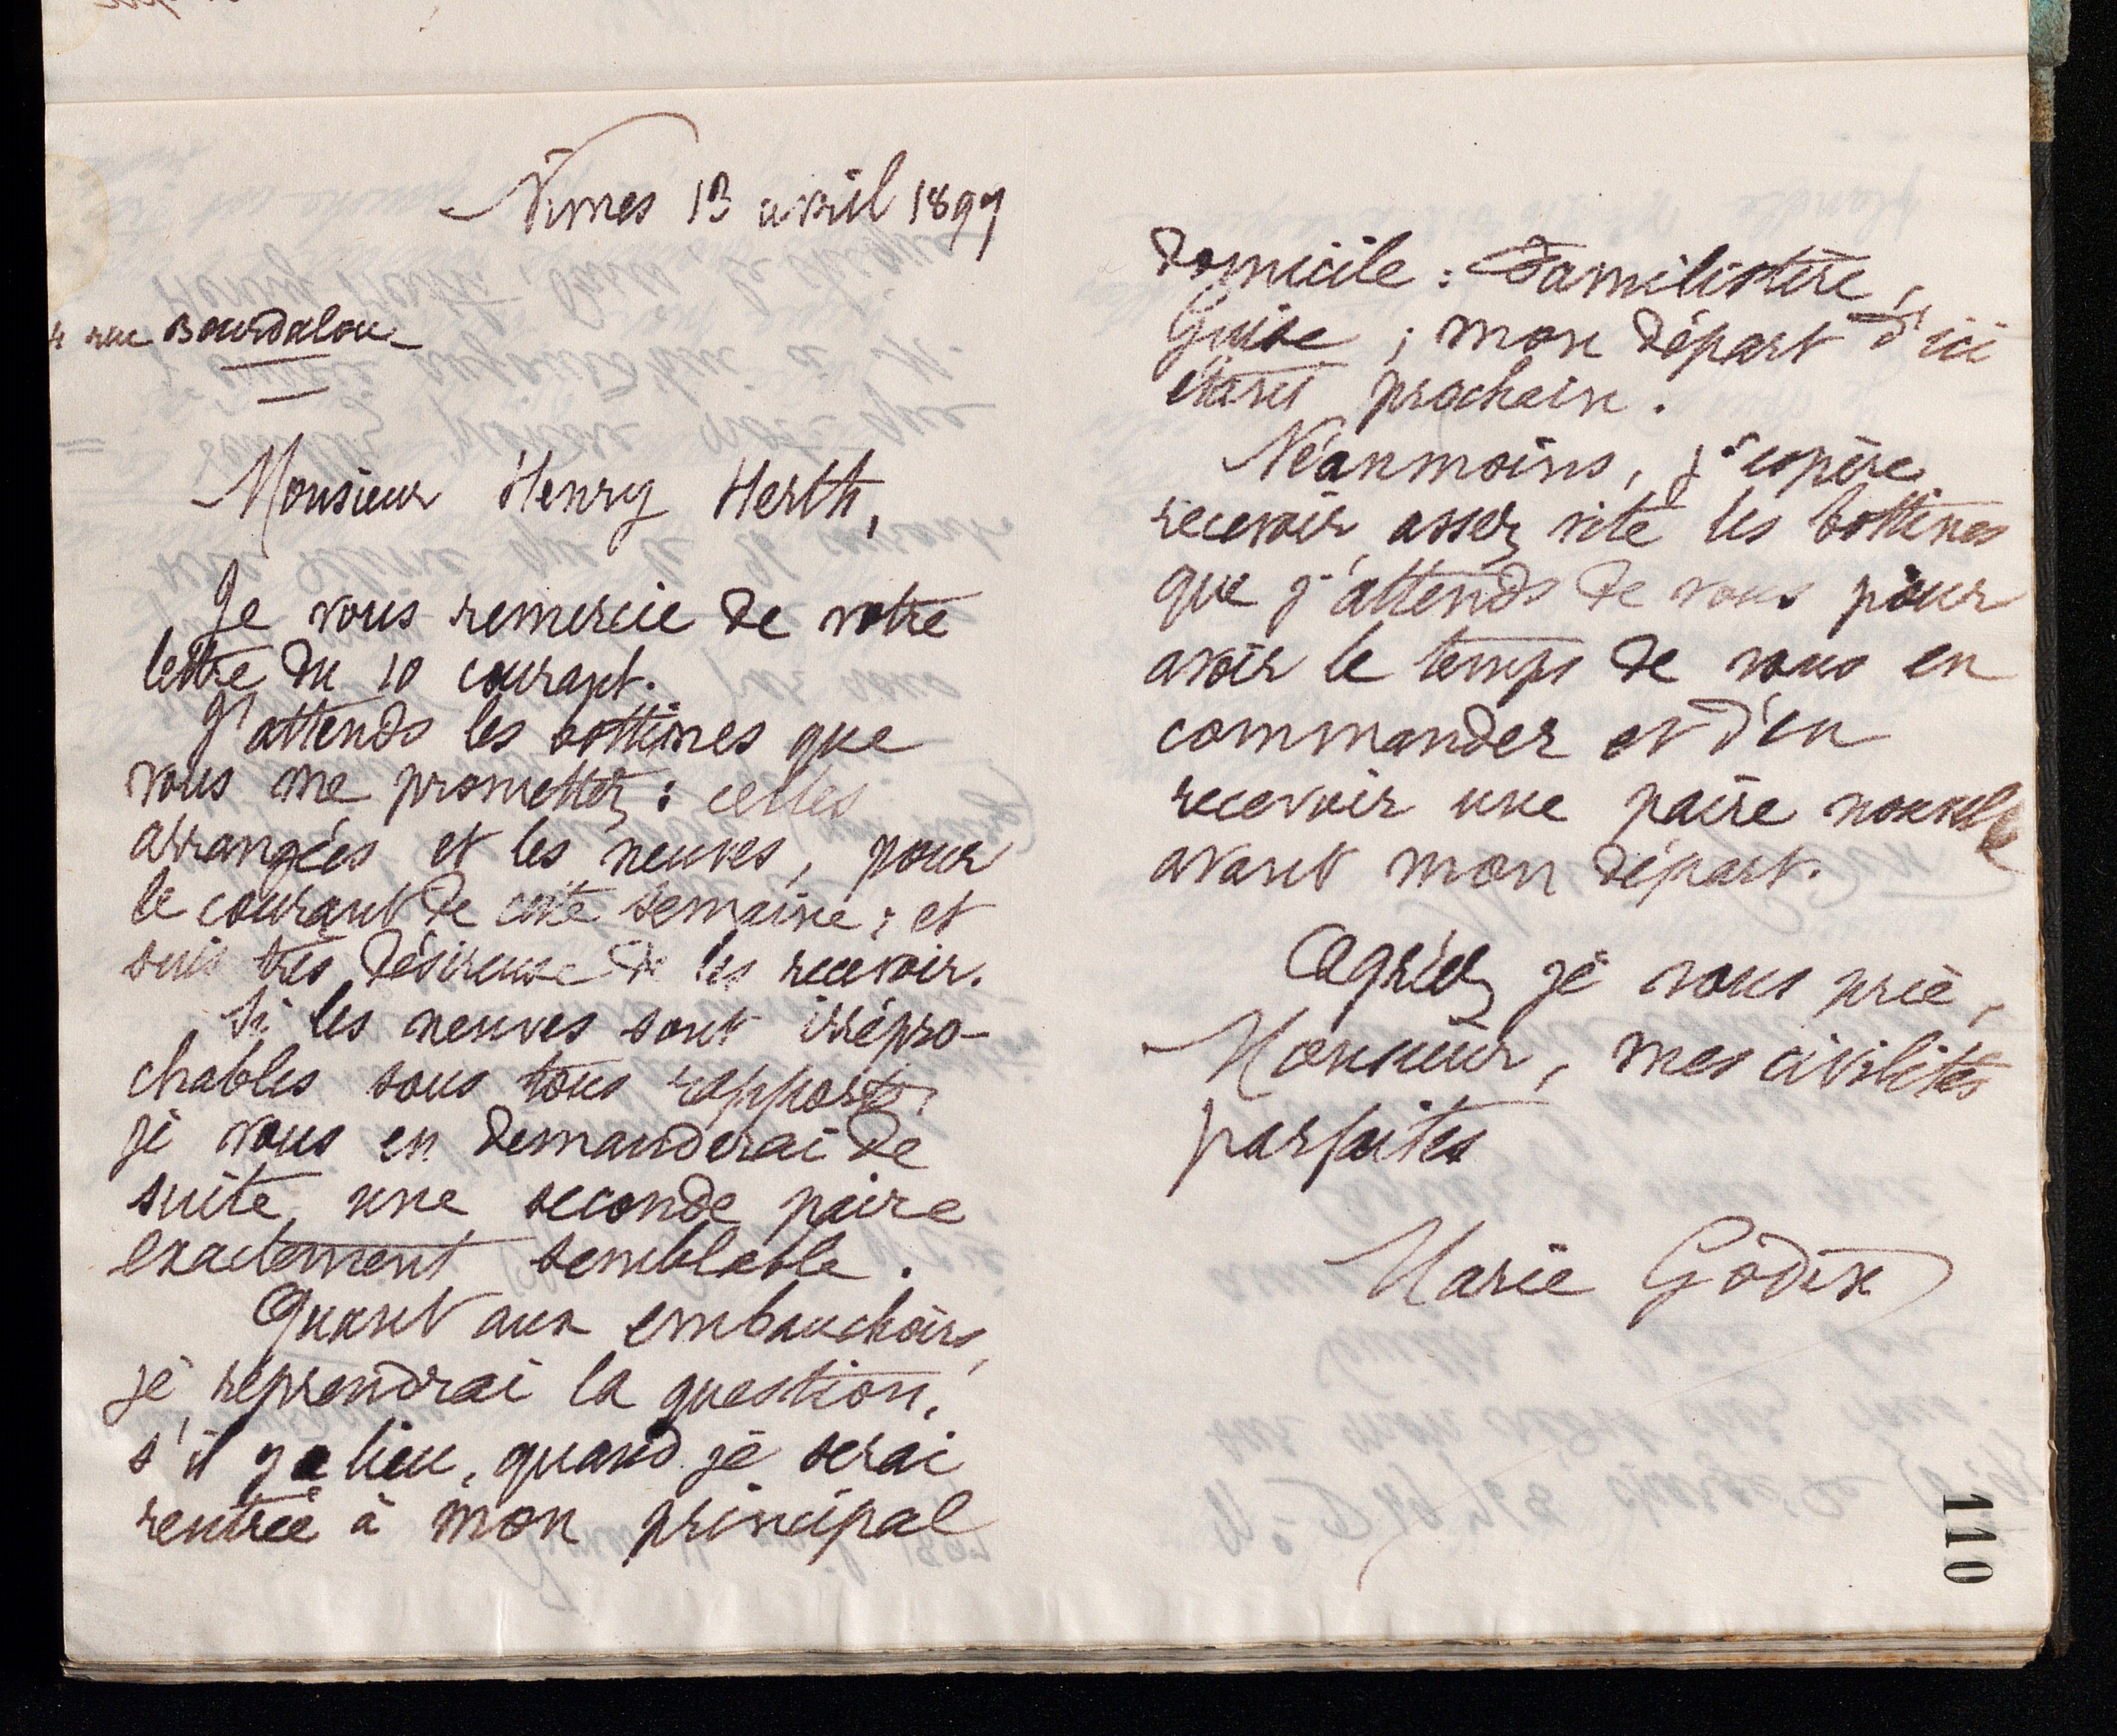 Nîmes 13 avril 1897
4 rue Bourdaloue
Monsieur Henry Herth,
Je vous remercie de votre
lettre du 10 courant.
J'attends les bottines que
vous me promettez : celles
arrangées et les neuves, pour
le courant de cette semaine ; et
suis très désireuse de les recevoir.
Si les neuves sont irrépro-
chables sous tous rapports,
je vous en demanderai de
suite, une seconde paire
exactement semblable.
Quant aux embauchoirs,
je reprendrai la question,
s'il y a lieu, quand je serai
rentrée à mon principal
domicile : Familistère,
Guise ; mon départ d'ici
étant prochain.
Néanmoins, j'espère
recevoir assez vite les bottines
que j'attends de vous pour
avoir le temps de vous en
commander et d'en
recevoir une paire nouvelle
avant mon départ.
Agréez je vous prie,
Monsieur, mes civilités
parfaites
Marie Godin
110